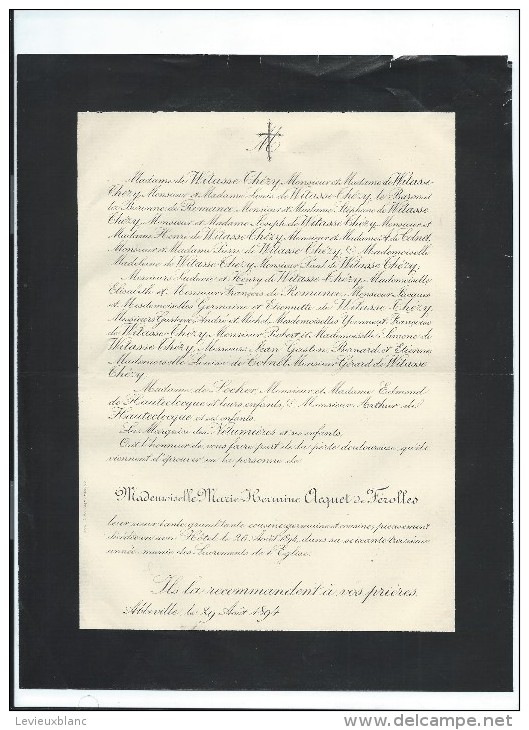 M
Madame de Witasse Thézy, Monsieur et Madame de Witasse
Thézy, Monsieur et Madame Louis de Witasse Thézy, le Baron et
la Baronne de Romance, Monsieur et Madame Stéphane de Witasse
Thézy, Monsieur et Madame Joseph de Witasse Thézy, Monsieur et
Madame Henri de Witasse Thézy, Monsieur et Madame de Colnet,
Monsieur et Madame de Witasse Thézy, Mademoiselle
Madeleine de Witasse Thézy, Monsieur Paul de Witasse Thézy,
Messieurs Ludovic et Henry de Witasse Thézy, Mademoiselle
Elisabeth et Monsieur François de Romance, Monsieur Jacques
et Mesdemoiselles Germaine et Etiennette de Witasse Thézy,
Messieurs Gustave André et Michel, Mesdemoiselles Yvonne et Françoise
de Witasse Thézy, Monsieur Robert et Mademoiselle Simone de
Witasse Thézy, Messieurs Jean, Gaston, Bernard et Etienne,
Mademoiselle Louise de Colnet, Monsieur Gérard de Witasse
Thézy,
Madame de Locher, Monsieur et Madame Edmond
de Hauteclocque et leurs enfants, Monsieur Arthur de
Hauteclocque et ses enfants,
La Marquise des Nétumières et ses enfants,
Ont l'honneur de vous faire part de la perte douloureuse, qu'ils
viennent d'éprouver en la personne de
Mademoiselle Marie Hermine Acquet de Férolles
leur sœur, tante, grand'tante, cousine germaine et cousine, pieusement
décédée en son Hôtel le 26 Août 1894, dans sa soixante treizième
année, munie des Sacrements de l'Eglise.
Ils la recommandent à vos prières.
Abbeville, le 29 Août 1894
Levieuxblanc
www.delcampe.net